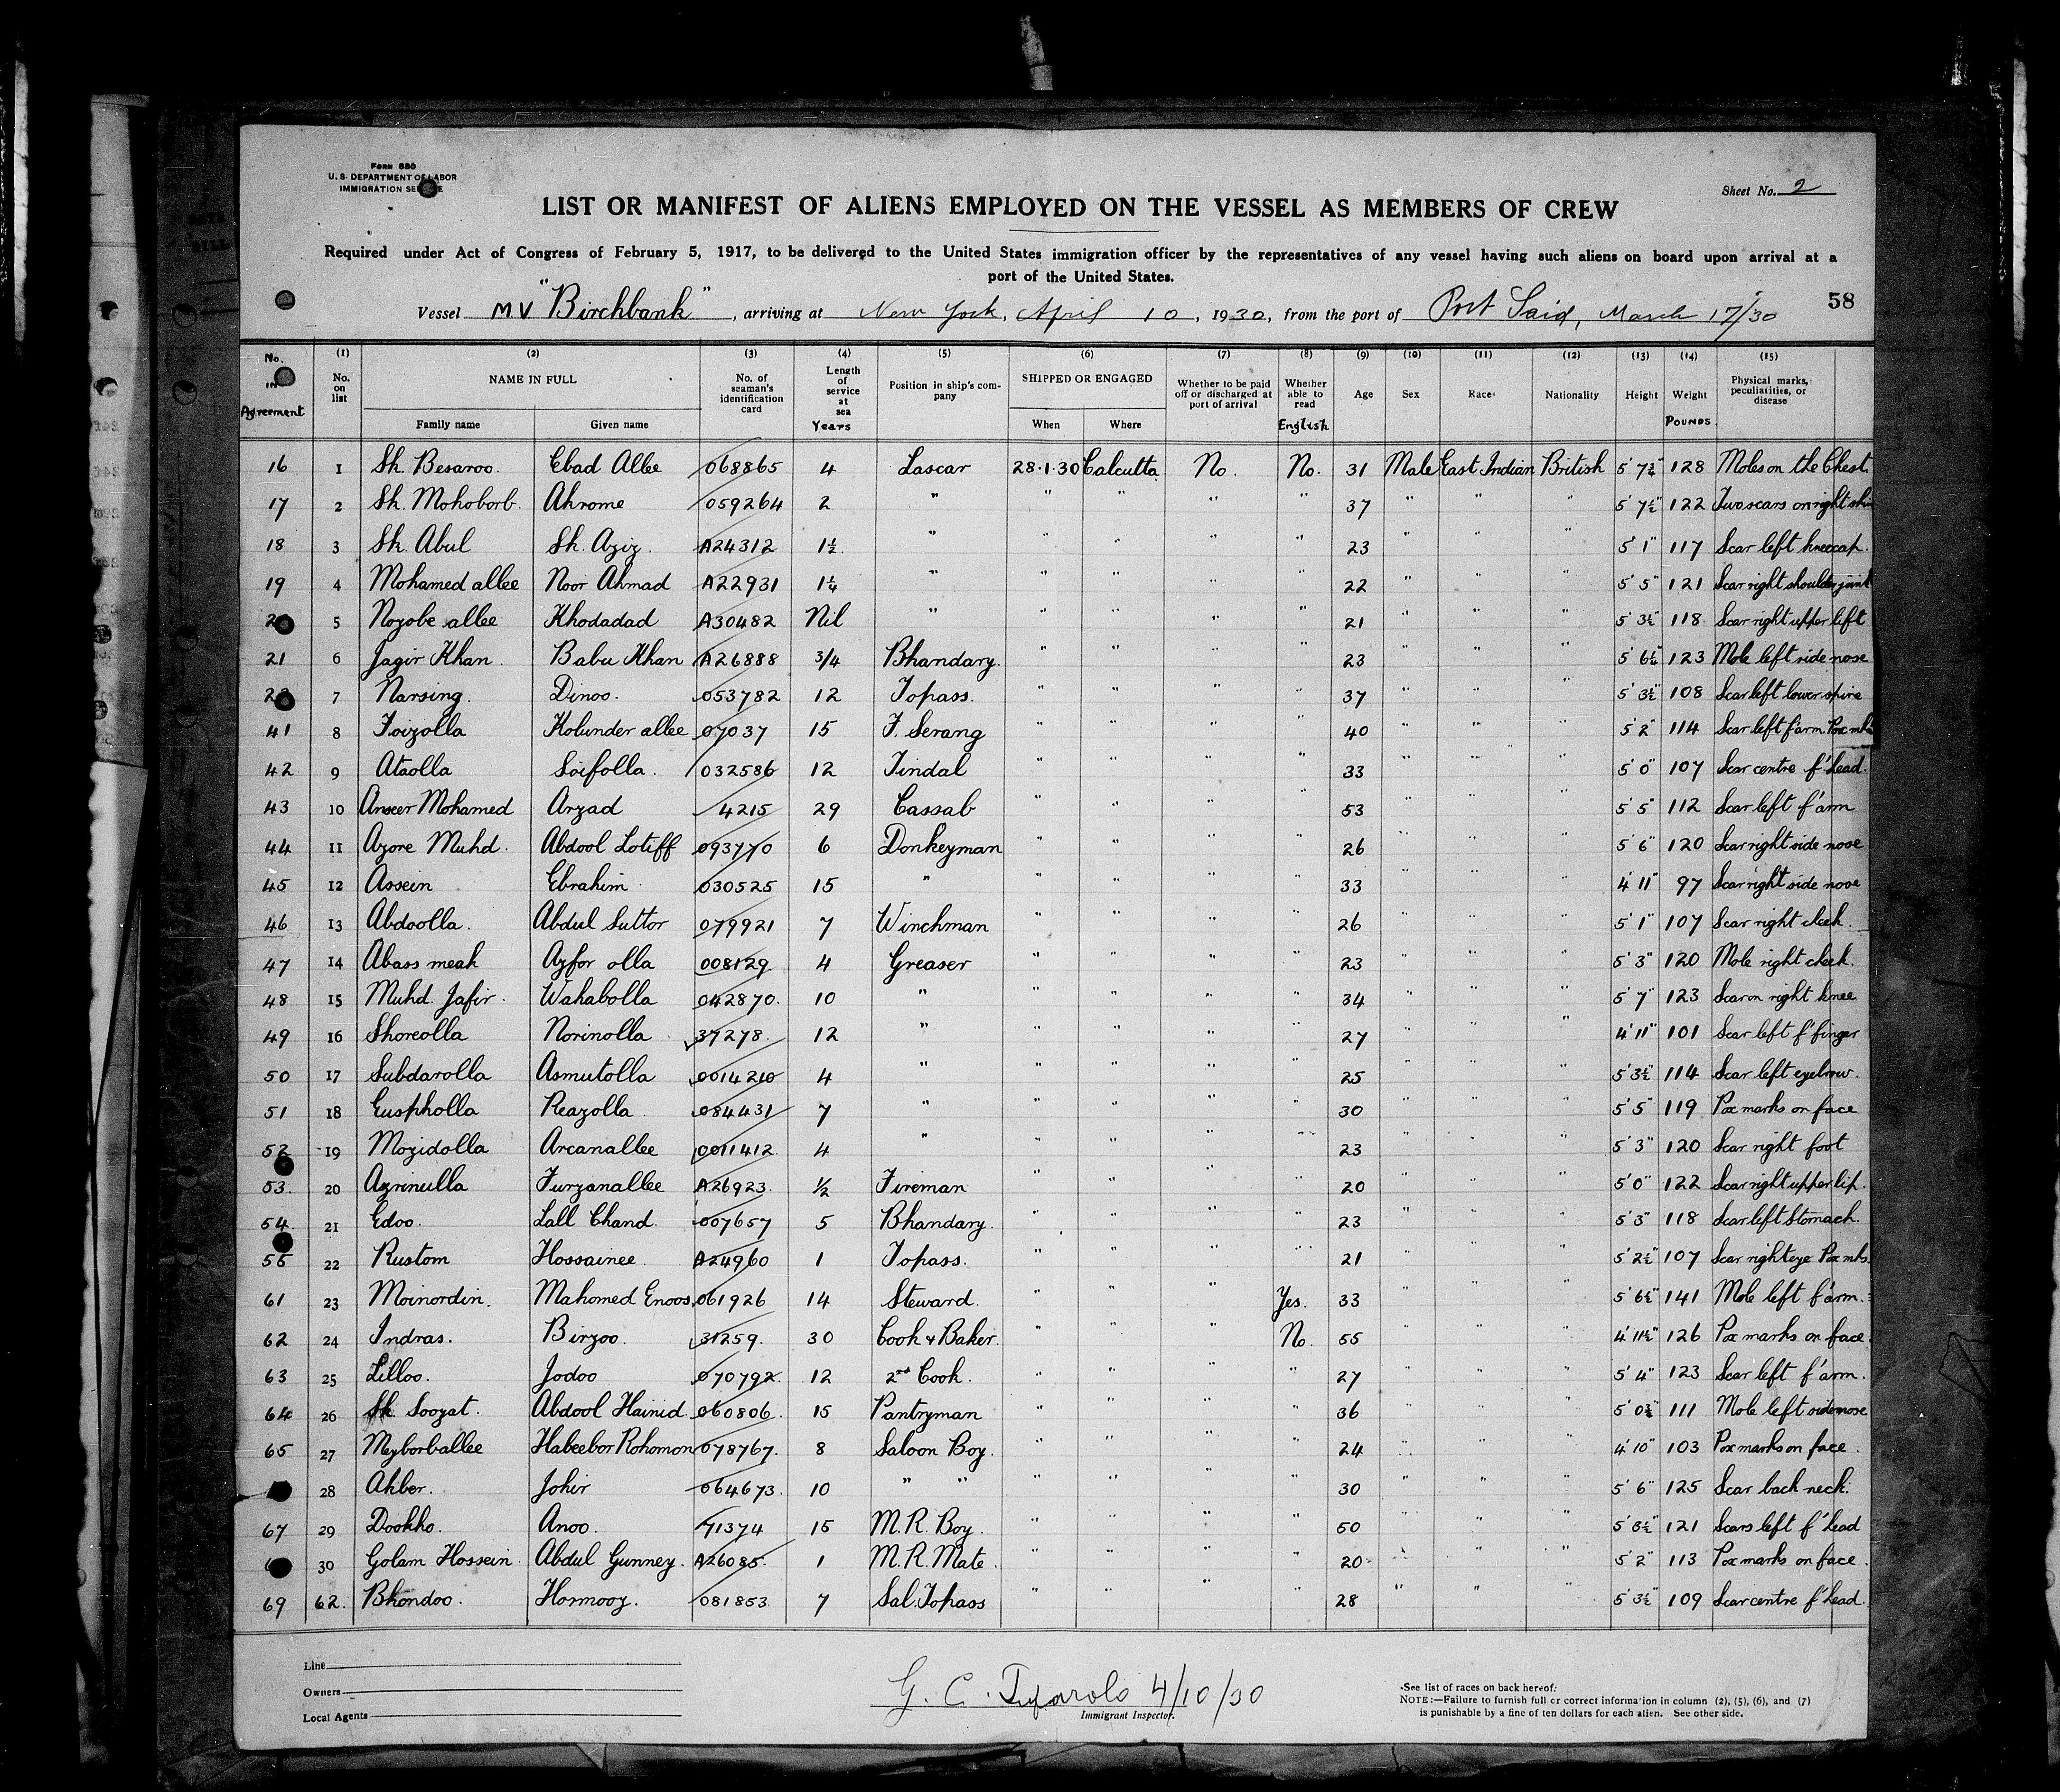 Form 680
U. S. DEPARTMENT OF LABOR
IMMIGRATION SE E
Sheet No. 2
LIST OR MANIFEST OF ALIENS EMPLOYED ON THE VESSEL AS MEMBERS OF CREW
Required under Act of Congress of February 5, 1917, to be delivered to the United States immigration officer by the representatives of any vessel having such aliens on board upon arrival at a
port of the United States.
Vessel MV "Birchbank", arriving at New York, April 10, 1930, from the port of Port Said, March 17/30
58
No. in Agreement (1) No. on list (2) NAME IN FULL Family name Given name (3) No. of seaman's identification card (4) Length of service at sea Years (5) Position in ship's company (6) SHIPPED OR ENGAGED When Where (7) Whether to be paid off or discharged at port of arrival (8) Whether able to read English (9) Age (10) Sex (11) Race (12) Nationality (13) Height (14) Weight POUNDS (15) Physical marks, peculiarities, or disease
16 1 Sh. Besaroo. Ebad Allee 068865 4 Lascar 28.1.30 Calcutta No. No. 31 Male East Indian British 5' 7¾" 128 Moles on the Chest.
17 2 Sh. Mohoborb. Ahrome 059264 2 " " " " " 37 " " " 5' 7½" 122 Two scars on right shin
18 3 Sh. Abul Sh. Aziz. A24312 1½ " " " " " 23 " " " 5' 1" 117 Scar left kneecap.
19 4 Mohamed allee Noor Ahmad A22931 1¼ " " " " " 22 " " " 5' 5" 121 Scar right shoulder joint
2 5 Nozobe allee Khodadad A30482 Nil " " " " " 21 " " " 5' 3½" 118 Scar right upper left
21 6 Jagir Khan. Babu Khan A26888 3/4 Bhandary. " " " " 23 " " " 5' 6¼" 123 Mole left side nose
2 7 Narsing. Dinoo. 053782 12 Topass. " " " " 37 " " " 5' 3½" 108 Scar left lower spine
41 8 Foizolla Kolunder allee 07037 15 F. Serang " " " " 40 " " " 5' 2" 114 Scar left f'arm. Pox mks
42 9 Ataolla Soifolla. 032586 12 Tindal " " " " 33 " " " 5' 0" 107 Scar centre f'head.
43 10 Anseer Mohamed Arzad 4215 29 Cassab " " " " 53 " " " 5' 5" 112 Scar left f'arm
44 11 Azore Muhd. Abdool Lotiff 093770 6 Donkeyman " " " " 26 " " " 5' 6" 120 Scar right side nose
45 12 Assein Ebrahim 030525 15 " " " " " 33 " " " 4' 11" 97 Scar right side nose
46 13 Abdoolla. Abdul Suttor 079921 7 Winchman " " " " 26 " " " 5' 1" 107 Scar right cheek.
47 14 Abass meah Azfor olla 008129 4 Greaser " " " " 23 " " " 5' 3" 120 Mole right cheek.
48 15 Muhd. Jafir. Wahabolla 042870. 10 " " " " " 34 " " " 5' 7" 123 Scar on right knee
49 16 Shoreolla Norinolla 37278. 12 " " " " " 27 " " " 4' 11" 101 Scar left f'finger
50 17 Subdarolla Asmutolla 0014210 4 " " " " " 25 " " " 5' 3½" 114 Scar left eyebrow.
51 18 Euspholla Reazolla. 084431 7 " " " " " 30 " " " 5' 5" 119 Pox marks on face
52 19 Mozidolla Arcanallee 0011412 4 " " " " " 23 " " " 5' 3" 120 Scar right foot
53. 20 Azrinulla Furzanallee A26923 ½ Fireman " " " " 20 " " " 5' 0" 122 Scar right upper lip.
54. 21 Edoo. Lall Chand. 007657 5 Bhandary. " " " " 23 " " " 5' 3" 118 Scar left Stomach.
55 22 Rustom Hossainee. A24960 1 Topass. " " " " 21 " " " 5' 2½" 107 Scar right eye Pox mks.
61 23 Moinordin. Mahomed Enoos. 061926 14 Steward. " " " Yes. 33 " " " 5' 6½" 141 Mole left f'arm.
62 24 Indras. Birzoo. 31259. 30 Cook & Baker. " " " No. 55 " " " 4' 11½" 126 Pox marks on face.
63 25 Lilloo. Jodoo 070792. 12 2nd Cook. " " " " 27 " " " 5' 4" 123 Scar left f'arm.
64 26 Sk. Soozat. Abdool Hainid. 060806. 15 Pantryman " " " " 36 " " " 5' 0¾" 111 Mole left side nose
65 27 Meyborballee Habeebor Rohomon 078767. 8 Saloon Boy. " " " " 24 " " " 4' 10" 103 Pox marks on face.
28 Akber. Johir 064673. 10 " " " " " " 30 " " " 5' 6" 125 Scar back neck.
67 29 Dookho. Anoo. 71374 15 M. R. Boy. " " " " 50 " " " 5' 3½" 121 Scars left f'head
6 30 Golam Hossein. Abdul Gunney. A26085. 1 M. R. Mate. " " " " 20 " " " 5' 2" 113 Pox marks on face.
69 62. Bhondoo. Hormooz. 081853 7 Sal. Topass " " " " 28 " " " 5' 3½" 109 Scar centre f'head.
Line
Owners
Local Agents
G. C. 4/10/30
Immigrant Inspector.
See list of races on back hereof.
NOTE:—Failure to furnish full or correct information in column (2), (5), (6), and (7)
is punishable by a fine of ten dollars for each alien. See other side.